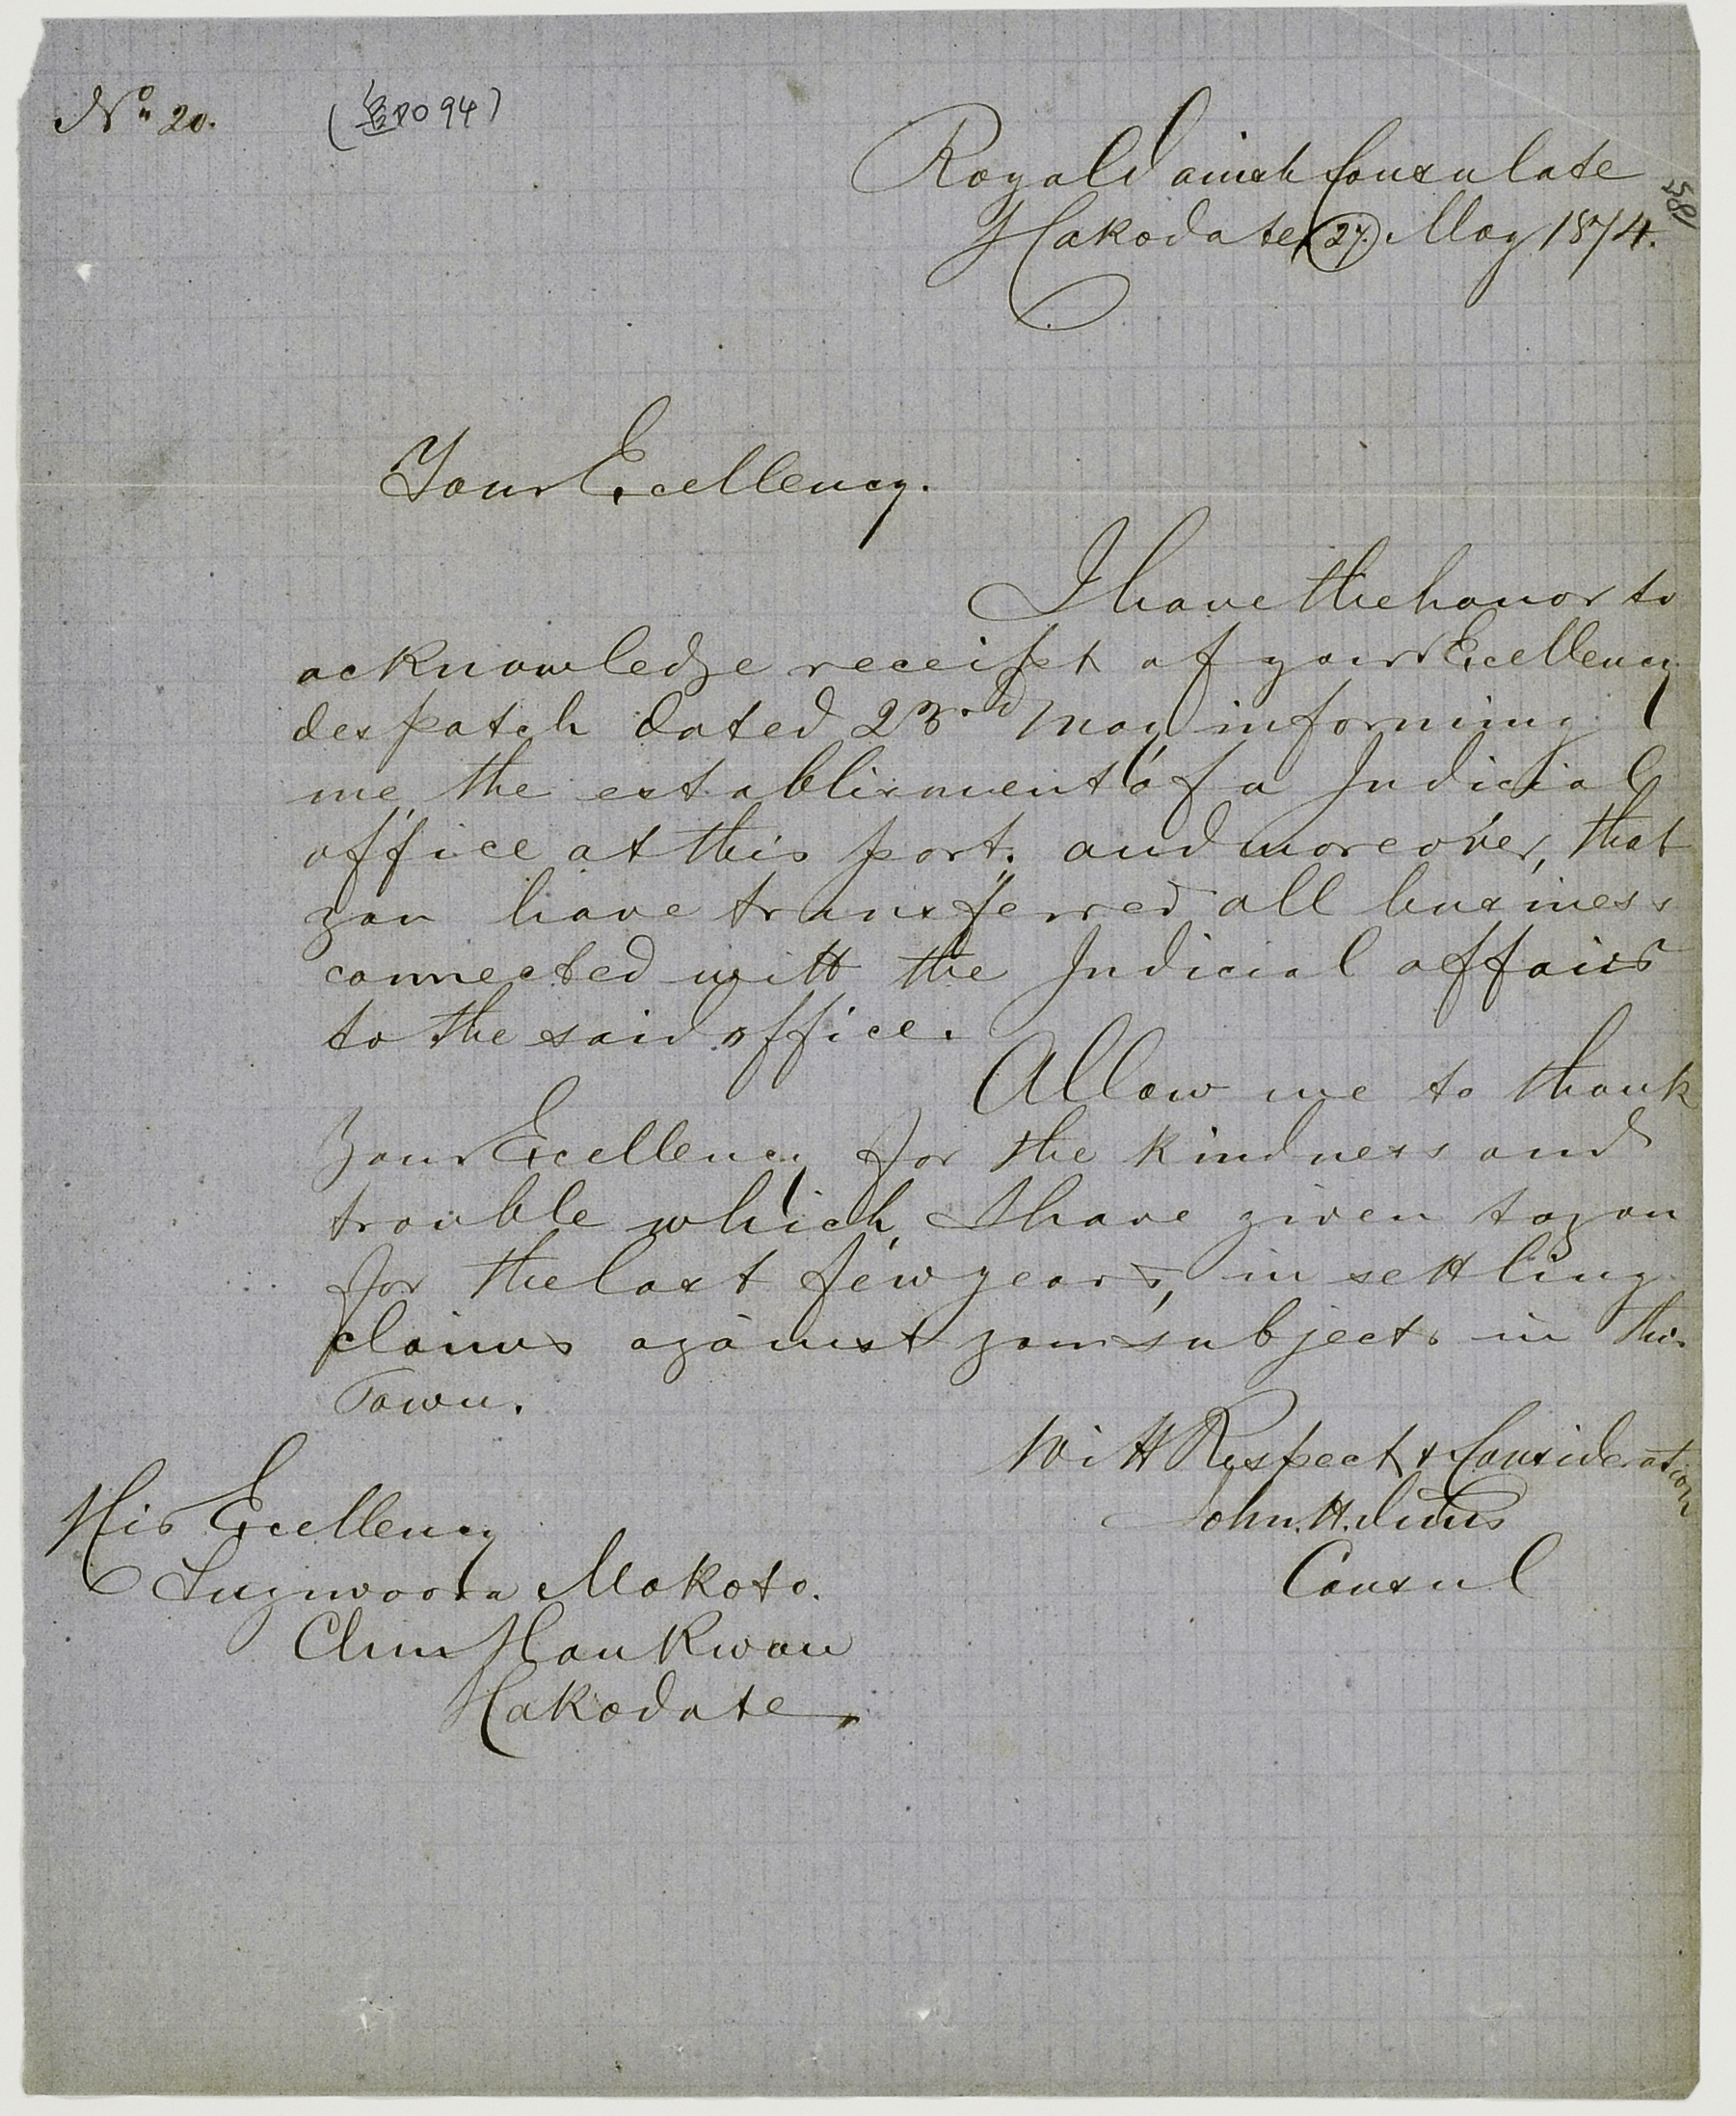 No 20.
94)
Royal Danish Consulate
Hakodate, 27. May 1874.
Your Excellency.
I have the honor to
acknowledge receipt of your Excellency
despatch dated 23rd May informing
me, the establisment of a Judicial
office at this port. and moreover, that
you have transferred all business
connected with the Judicial affairs
to the said office.
Allow me to thank
Your Excellency for the kindness and
trouble which, I have given to you
for the last few years, in settling
claims against your subjects in this
Town.
With Respect & Consideration
John. H.
Consul
His Excellency
Makoto.
Hakodate